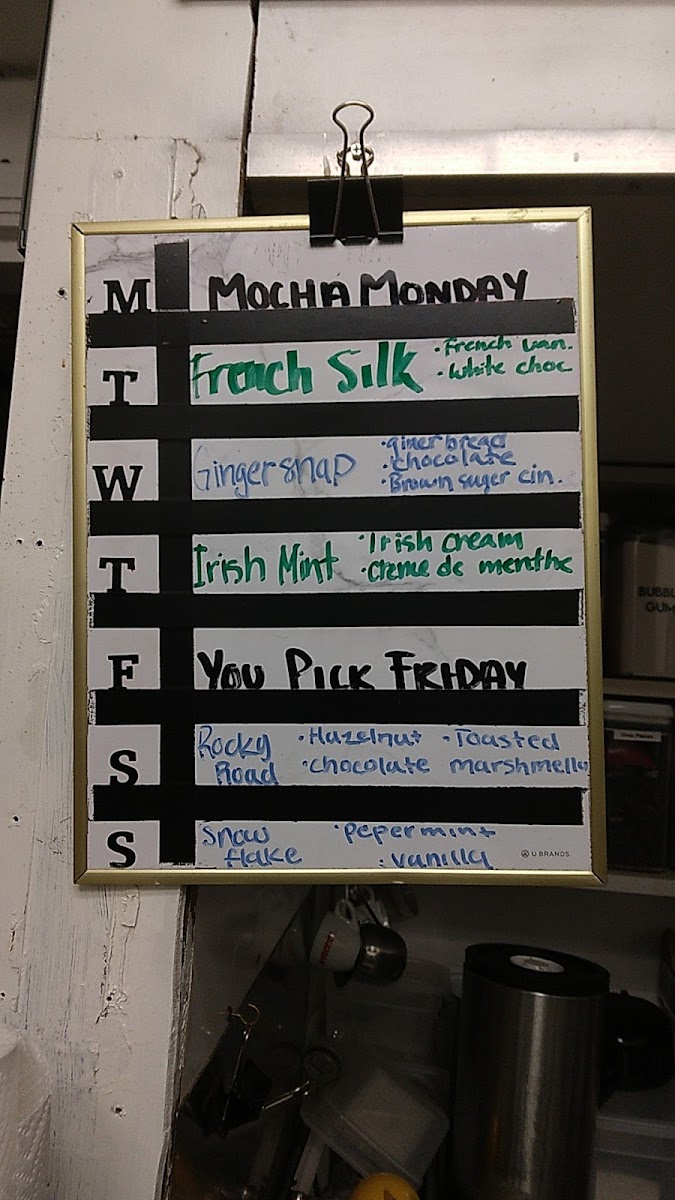 M MOCHA MONDAY
T French Silk
· French van.
· White choc
W Gingersnap
· ginerbread
· chocolate
· Brown suger cin.
T Irish Mint
· Irish cream
· creme de menthe
F YOU PICK FRIDAY
S Rocky Road
· Hazelnut · Toasted
· chocolate marshmello
S Snow flake
· Pepermint
· vanilla
U BRANDS
BUBBL
GUM